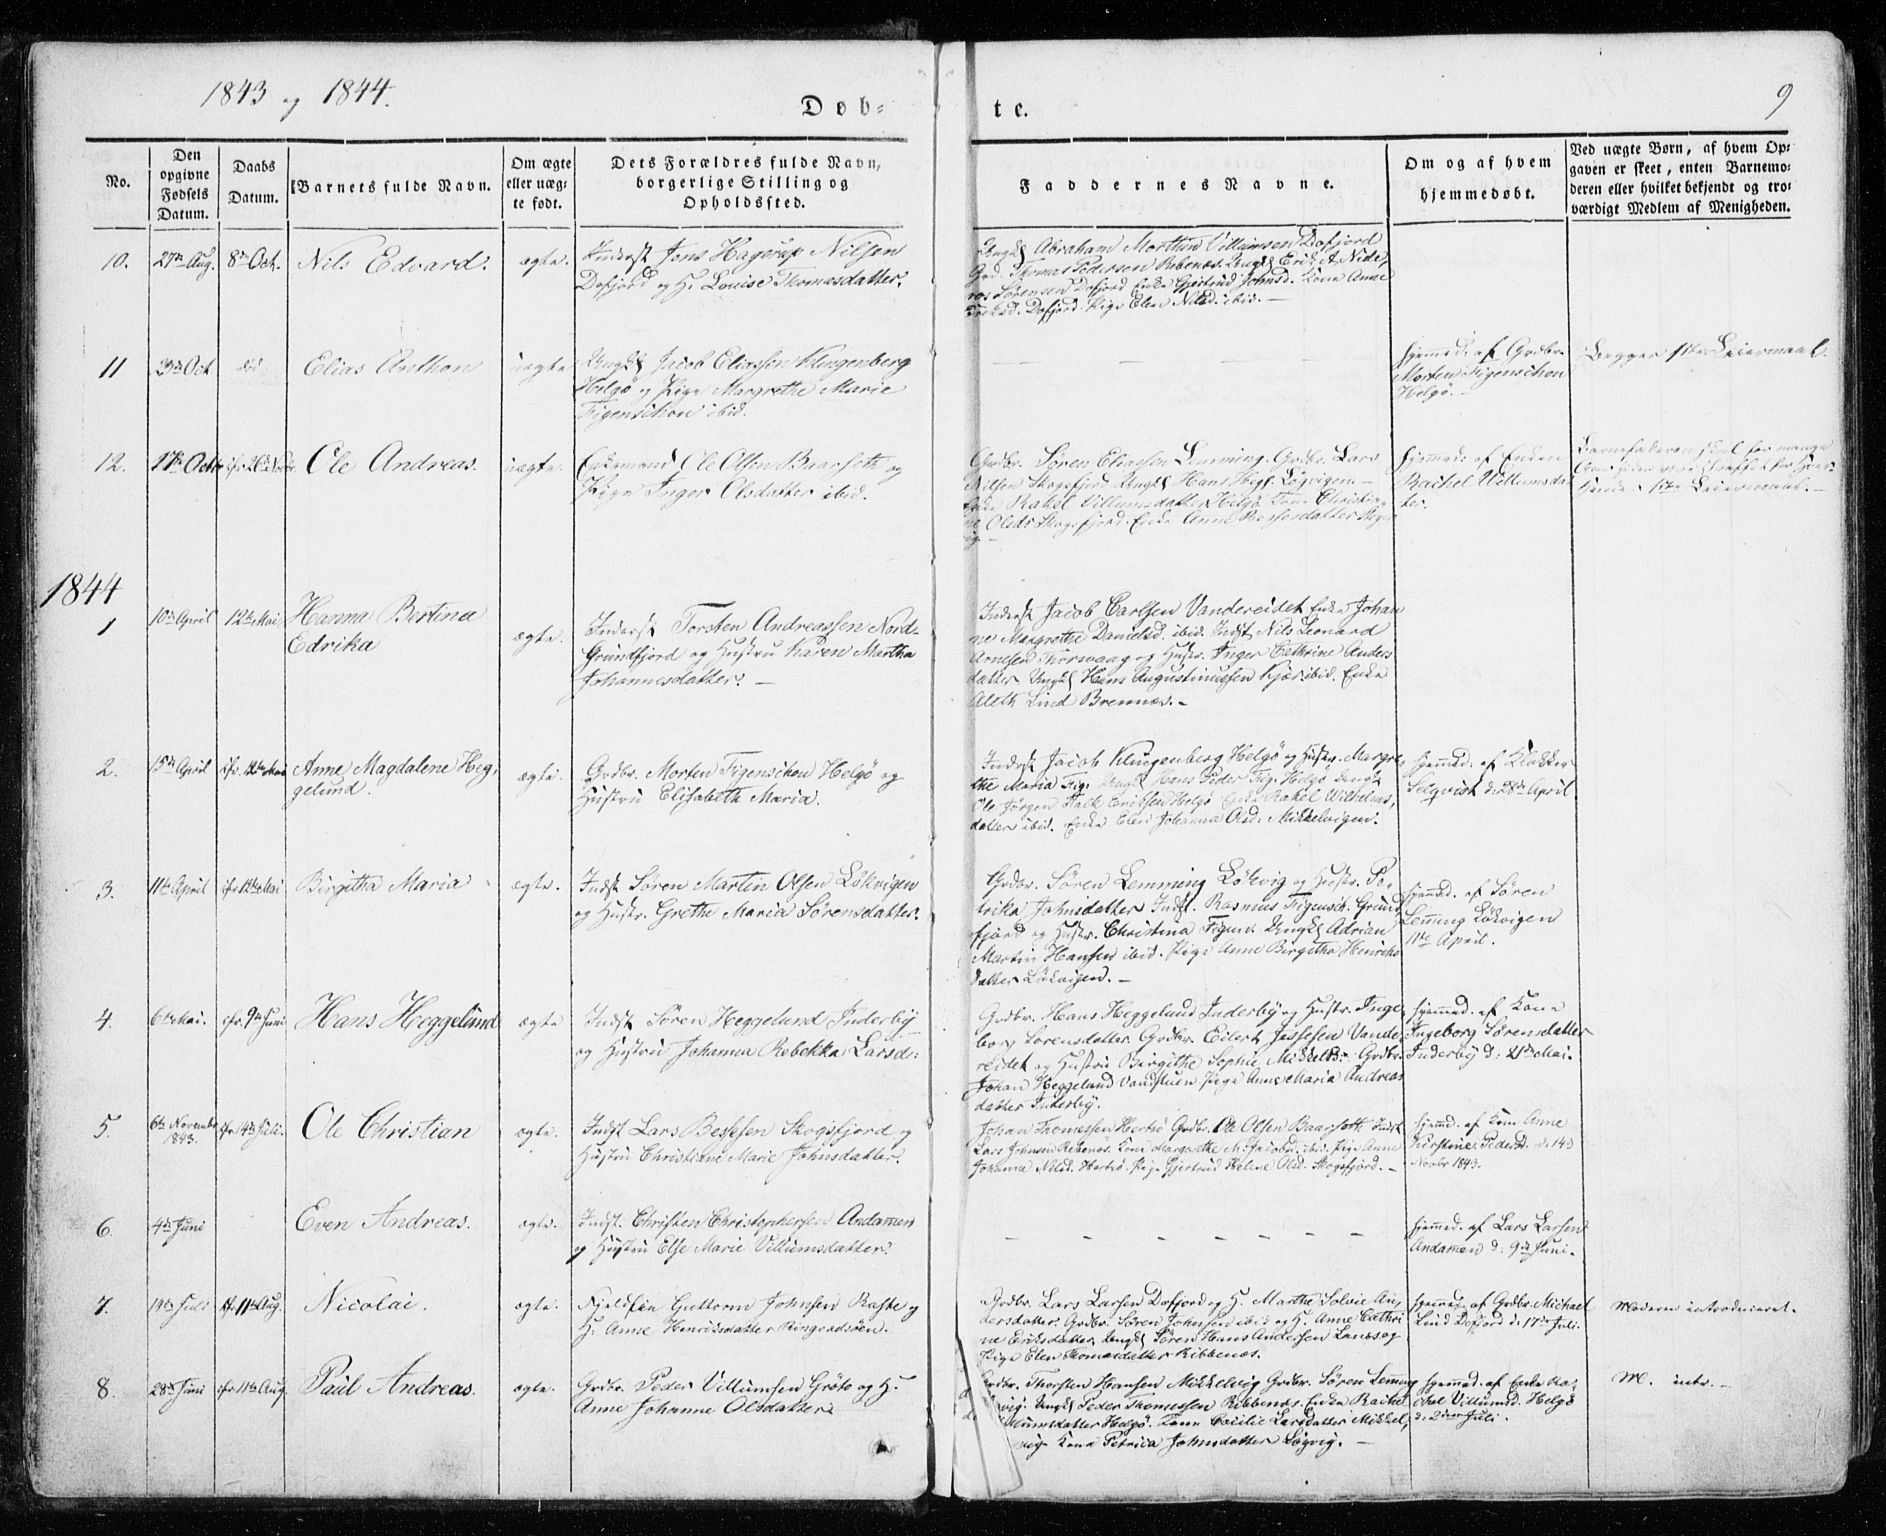 1843 og 1844.
Døb-
te.
9
No.
Den opgivne Fødsels Datum.
Daabs Datum.
Barnets fulde Navn.
Om ægte eller uægte født.
Dets Forældres fulde Navn, borgerlige Stilling og Opholdssted.
Faddernes Navne.
Om og af hvem hjemmedøbt.
Ved uægte Børn, af hvem Opgaven er skeet, enten Barnemoderen eller hvilket bekjendt og troværdigt Medlem af Menigheden.
10. 27de Aug. 8de Oct. Nils Edvard. ægte.
Inderst Jens Hagerup Nilsen
Dofjord og H. Louise Thomasdatter.
Ungk. Abraham Morthen Villumsen Dofjord
Thomas Pedersen Rebenæs. Ungk. Erik A. Nide-
ros Sørensen Dofjord Enke Gjertrud Johnsd. Kone Anne
Eriksd. Dofjord. Pige Elen Nilsd. ibid. —
11 3de Oct Elias Anthon uægte
Ungk. Jacob Eliassen Klingenberg
Helgø og Pige Margrethe Marie
Figenschou ibid.
hjemmed. af Grdbr.
Morten Figenschou
Helgø. —
Begges 1ste Leiermaal.
12. Ole Andreas. uægte.
Enkemand Ole Olsen Baarseth og
Pige Inger Olsdatter ibid.
Grdbr. Sören Eliassen Lemming. Grdbr. Lars
Nilsen Skogsfjord Ungk. Hans Løgvigen —
Enke Rakel Villumsdatter Helgø Kone Christia-
ne Olsdr Skogsfjord. Enke Anne
hjemmed. af Enken
Rachel Villumsdat-
ter.
Barnefaderen skal for mange
Aar siden være straffet for
1ste Leiermaal. —
1844
1 10de April 12te Mai Hanna Bertina
Edrika ægte.
Inderst Torsten Andreassen Nord-
Grundfjord og Hustru Karen Martha
Johannesdatter. —
Inderst Jacob Carlsen Vandereidet Enke Johan
ne Margrethe Danielsd. ibid. Indst Nils Leonard
Arnesen Thorsvaag og Hustr. Inger Cathrine Anders
datter Ungk Hans Augustinussen Kjær ibid. Enke
Aleth Lind Brennæs. —
2. 15de April cfr. 12te Mai Anne Magdalene Heg-
gelund. ægte.
Grdbr. Morten Figenschou Helgø og
Hustru Elisabeth Maria.
Inderst Jacob Klingenberg Helgø og Hustr. Margre-
the Maria Fig. Ungk Hans Peder Fig. Helgø Ungk
Ole Jörgen Falk Eriksen Helgø Enke Rakel Wilhelms-
datter ibid. Enke Elen Johanna Olsd. Mikkelvigen.
hjemmed. af Klokker
Selqvist d. 28de April
3. 11te April cfr. 12te Mai Birgitha Maria ægte.
Indst Sören Martin Olsen Lökvigen
og Hustr. Grethe Maria Sørensdatter.
Grdbr. Sören Lemming Lökvig og Hustr. Pe-
trika Johnsdatter Indst. Rasmus Figensch. Grund
fjord og Hustr. Christina Figens. Ungk Adrian
Martin Hansen ibid. Pige Anne Birgitha Henriks
datter Lökvigen. —
hjemmed. af Sören
Lemming Lökvigen
11te April.
4. 6te Mai. cfr. 9de Juni Hans Heggelund ægte
Indst Sören Heggelund Inderby
og Hustru Johanna Rebekka Larsd:
Grdbr. Hans Heggelund Inderby og Hustr. Inge-
borg Sørensdatter. Grdbr. Eilert Jessesen Vande-
reidet og Hustru Birgithe Sophie Mikkelsd: Grdbr.
Johan Heggelund Vandstuen Pige Anne Maria Andreas
datter Inderby.
hjemmed. af Kone
Ingeborg Sørensdatter
Inderby d: 21de Mai.
5. 6te Novembr 1843. cfr. 14de Juli. Ole Christian ægte.
Indst Lars Bessesen Skogsfjord og
Hustru Christiane Marie Johnsdatter.
Johan Thomessen Hersø Grdbr. Ole Olsen Baarseth Indst
Lars Johnsen Rebenæs. Kone Margrethe M. Jacobsd. ibid. Pige Anne
Johanna Nilsd. Hersø. Pige Gjertrud Helene Olsd. Skogsfjord. —
hjemmed. af Kone Anne
Kirstine Pedersd. d. 14de
Novbr 1843.
6. 4de Juni Even Andreas. ægte.
Indst. Christen Christophersen Andamen
og Hustru Else Marie Villumsdatter.
— — — — — — —
hjemmed. af Lars Larsen
Andamen d: 9de Juni.
7. 14de Juli cfr. 11te Aug. Nicolai. ægte.
Fjeldfin Guttorm Johnsen Raste og
H. Anne Henriksdatter Ringvadsöen.
Grdbr. Lars Larsen Dofjord og H. Marthe Solvie An-
dersdatter. Grdbr. Sören Johnsen ibid og H. Anne Cathri
ne Eriksdatter, Ungk Sören Hans Andersen Lanes og
Pige Elen Thomasdatter Ribbenæs.
hjemmed. af Grdbr. Michael
Lind Dofjord d. 17de Juli.
Moderen introduceret.
8. 28de Juni cfr. 11te Aug. Paul Andreas. ægte.
Grdbr. Peder Villumsen Gröto og H.
Anne Johanne Olsdatter.
Grdbr. Thorsten Hansen Mikkelvig Grdbr. Sören Leming
Ungk Peder Thomessen Ribbenæs. Enke Rachel
Villumsdatter Helgø. Kone Cecilie Larsdatter Mikkel-
vig Kone Petrica Johnsdatter Løgvig. —
hjemmed. af Enke Ra-
chel Villumsd. Helgø
d. 2den Juli.
M. intr. —